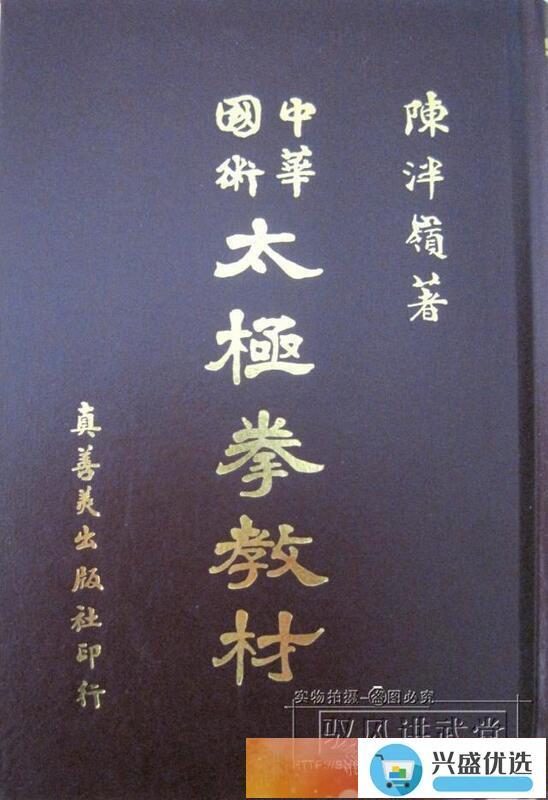 陳泮嶺著
中華
國術
太極拳教材
真善美出版社印行
实物拍摄-盗图必究
驭风讲武堂
兴盛优选